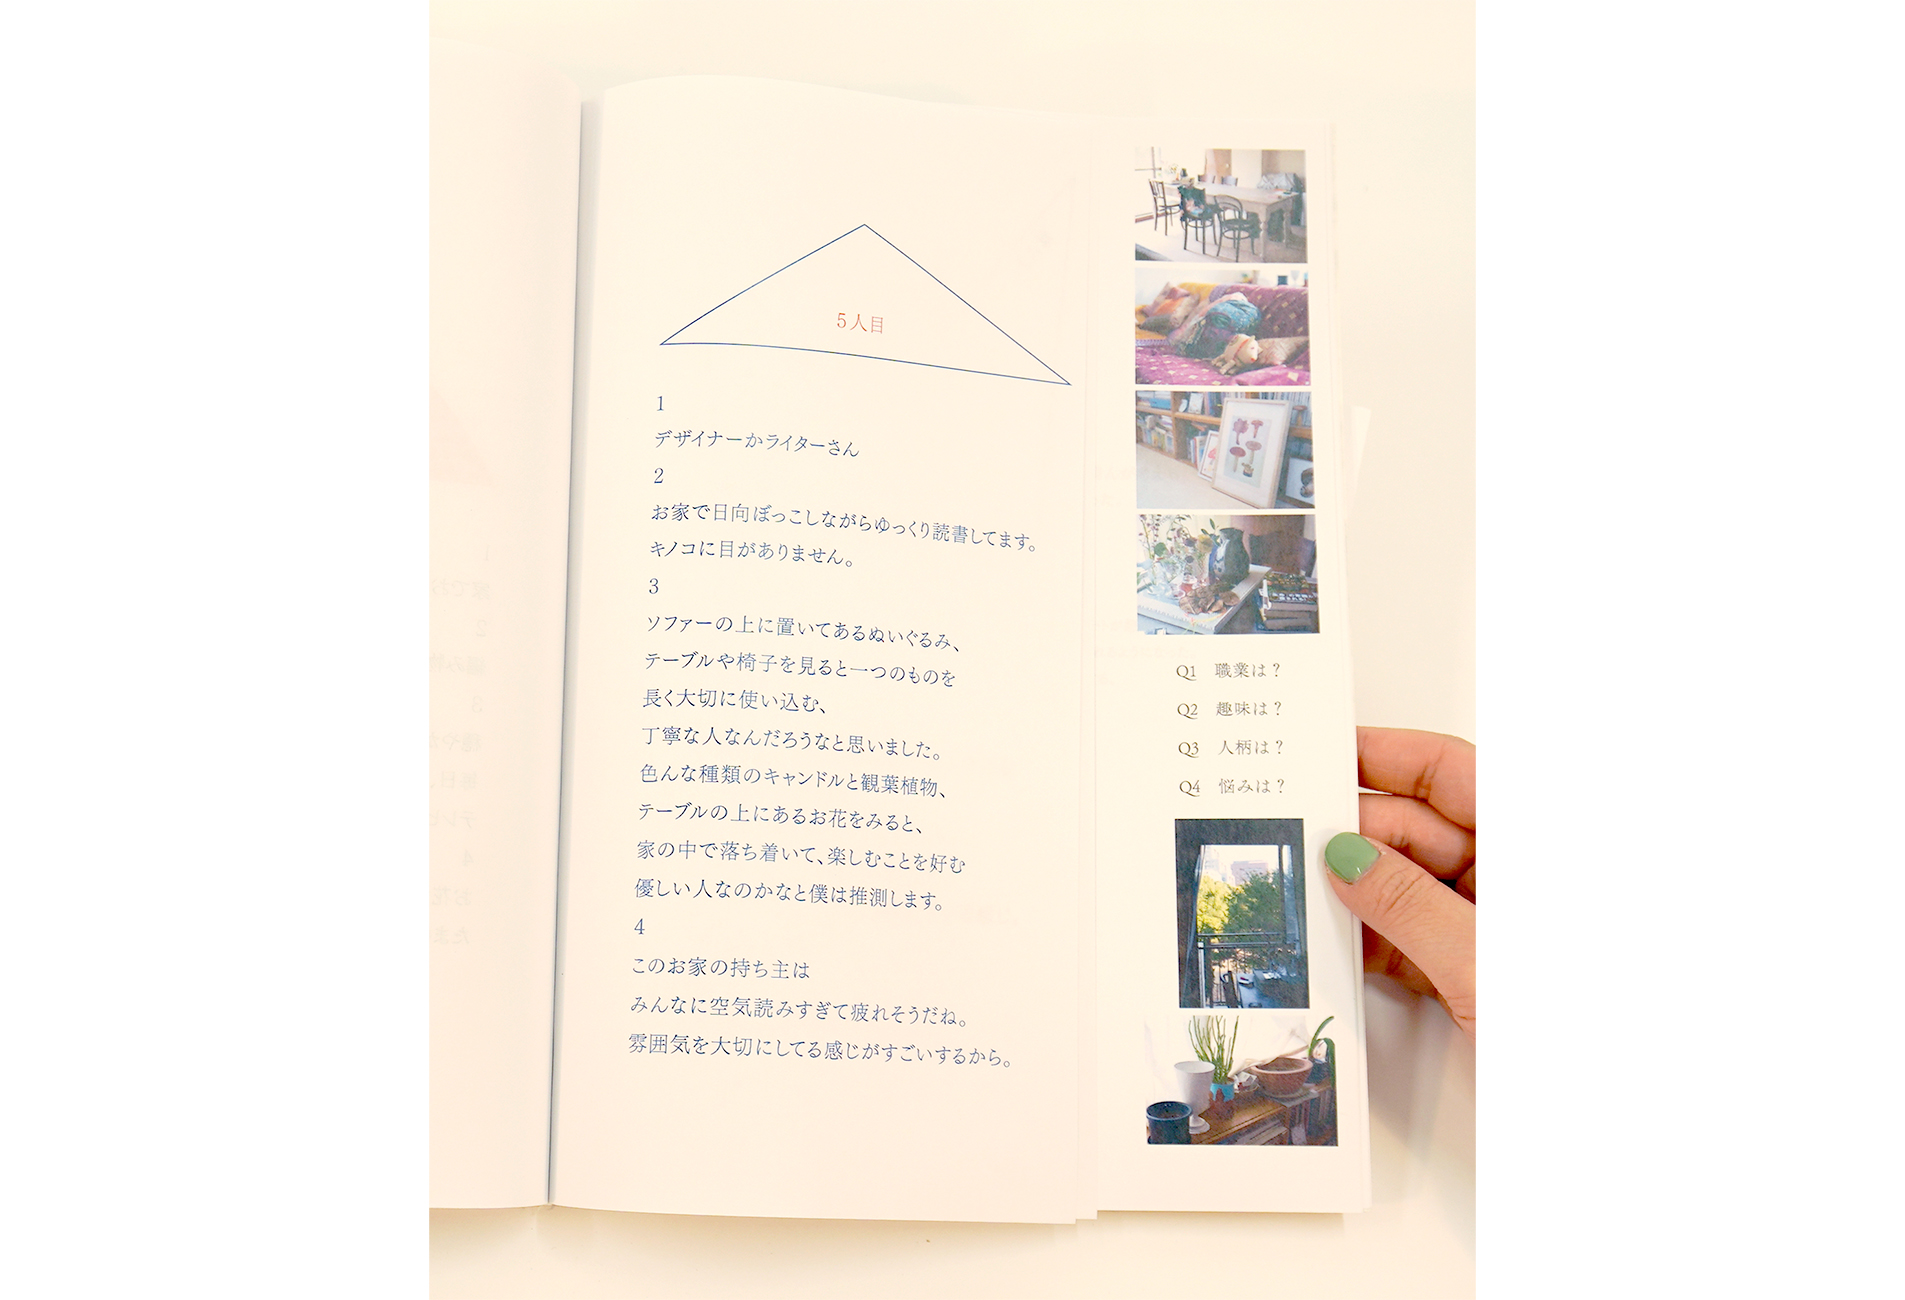 5人目
1
デザイナーかライターさん
2
お家で日向ぼっこしながらゆっくり読書してます。
キノコに目がありません。
3
ソファーの上に置いてあるぬいぐるみ、
テーブルや椅子を見ると一つのものを
長く大切に使い込む、
丁寧な人なんだろうなと思いました。
色んな種類のキャンドルと観葉植物、
テーブルの上にあるお花をみると、
家の中で落ち着いて、楽しむことを好む
優しい人なのかなと僕は推測します。
4
このお家の持ち主は
みんなに空気読みすぎて疲れそうだね。
雰囲気を大切にしてる感じがすごいするから。
Q1 職業は？
Q2 趣味は？
Q3 人柄は？
Q4 悩みは？